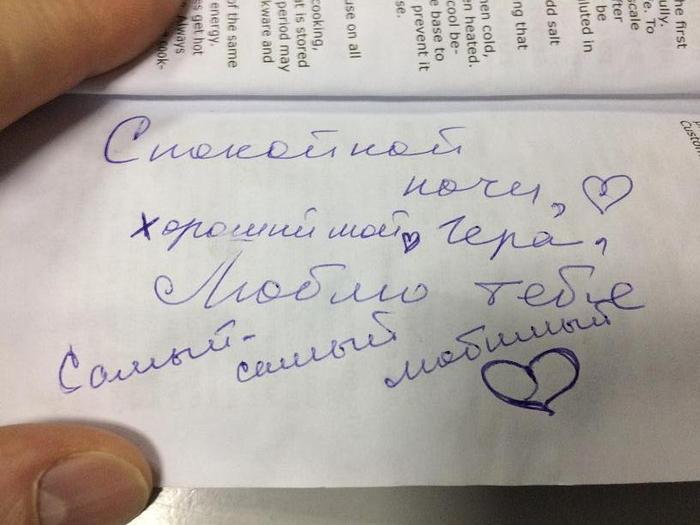 he first
ully.
e. To
scale
fter
be
luted in
dd salt
ng that
hen cold,
en heated.
cool be-
e base to
prevent it
se.
use on all
cooking,
t is stored
period may
kware and
of the same
energy.
es get hot
Always
ook-
Custom
Спокойной
ночи, ♡
хорошиймой♡ Гера,
Люблю тебе
Самый-
самый любимый
♡